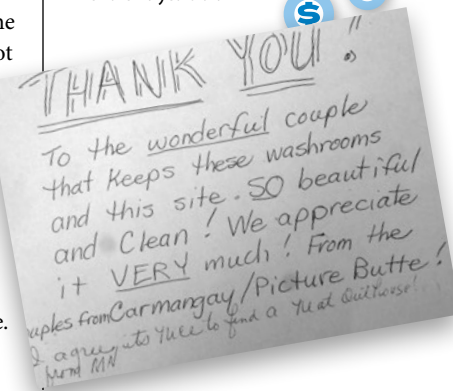 ne
ot
$
THANK YOU!
To the wonderful couple
that keeps these washrooms
and this site. SO beautiful
and Clean! We appreciate
it VERY much! From the
uples from Carmangay/Picture Butte!
I agree, its to find a
from MN
e.